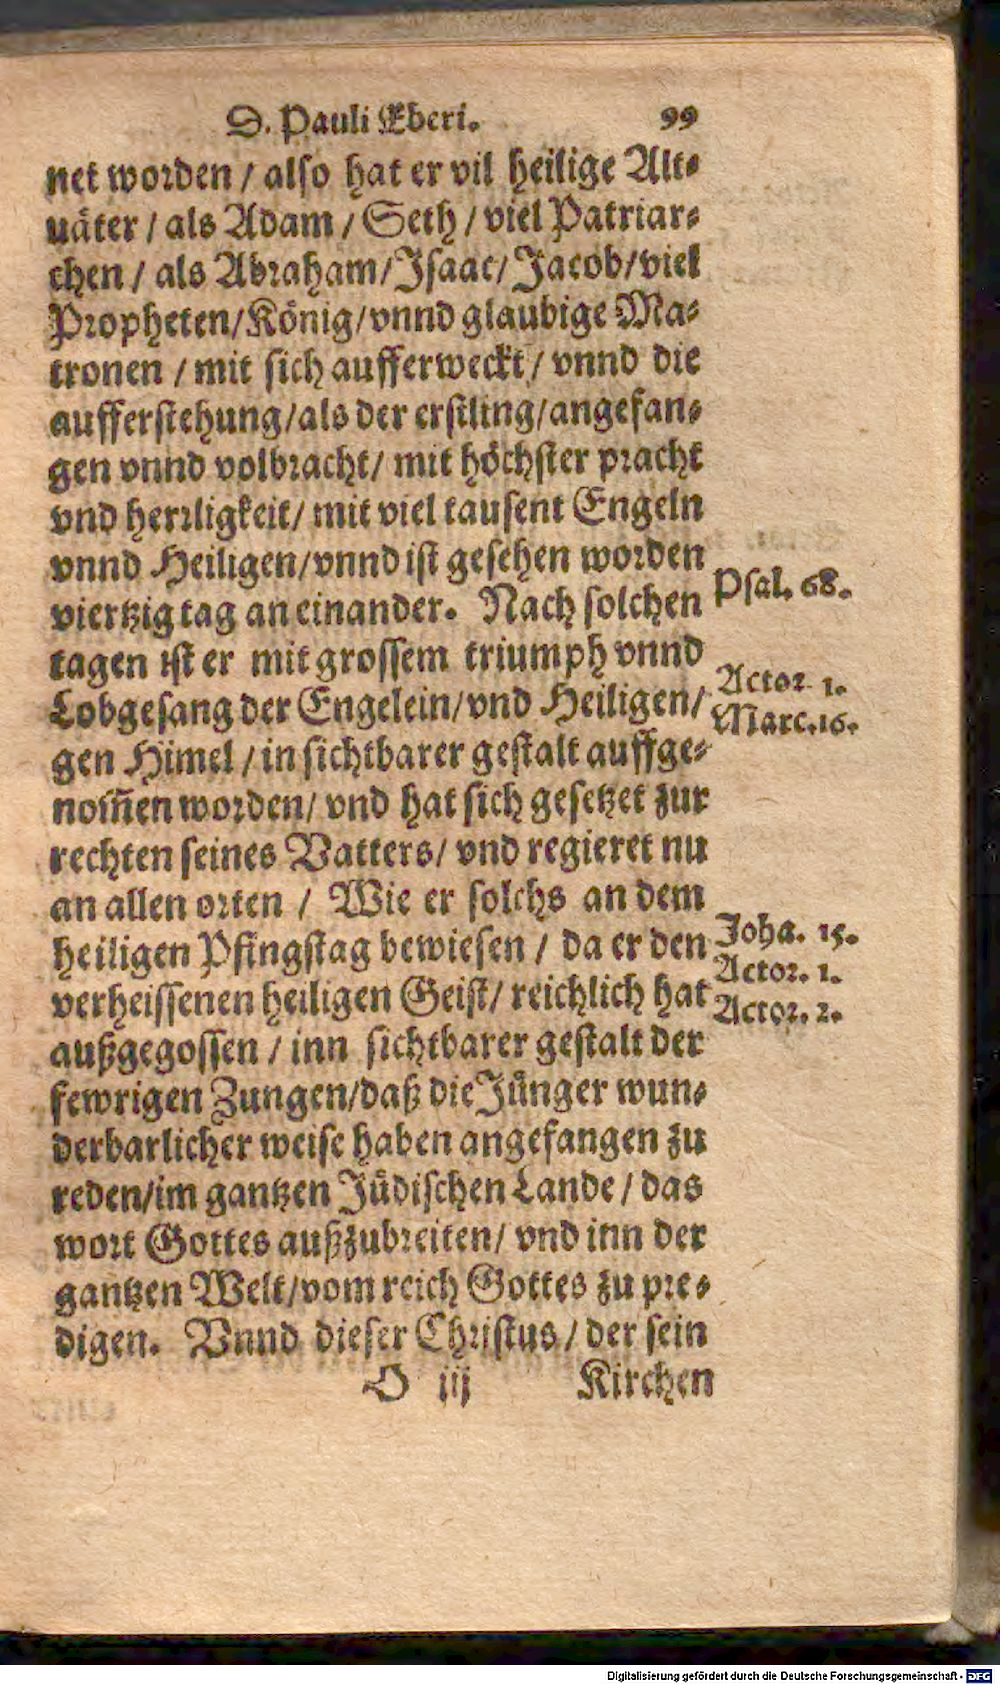 D. Pauli Eberi. 99
net worden / also hat er vil heilige Alt⸗
uäter / als Adam / Seth / viel Patriar⸗
chen / als Abraham / Isaac / Jacob / viel
Propheten / König / vnnd glaubige Ma⸗
tronen / mit sich aufferweckt / vnnd die
aufferstehung / als der erstling / angefan⸗
gen vnnd volbracht / mit höchster pracht
vnd herrligkeit / mit viel tausent Engeln
vnnd Heiligen / vnnd ist gesehen worden
viertzig tag an einander. Nach solchen
Psal. 68.
tagen ist er mit grossem triumph vnnd
Lobgesang der Engelein / vnd Heiligen /
Actor. 1.
Marc. 16.
gen Himel / in sichtbarer gestalt auffge⸗
nom̃en worden / vnd hat sich gesetzet zur
rechten seines Vatters / vnd regieret nu
an allen orten / Wie er solchs an dem
heiligen Pfingstag bewiesen / da er den
Joha. 15.
Actor. 1.
verheissenen heiligen Geist / reichlich hat
Actor. 2.
außgegossen / inn sichtbarer gestalt der
fewrigen Zungen / daß die Jünger wun⸗
derbarlicher weise haben angefangen zu
reden / im gantzen Jüdischen Lande / das
wort Gottes außzubreiten / vnd inn der
gantzen Welt / vom reich Gottes zu pre⸗
digen. Vnnd dieser Christus / der sein
O iij Kirchen
Digitalisierung gefördert durch die Deutsche Forschungsgemeinschaft - DFG